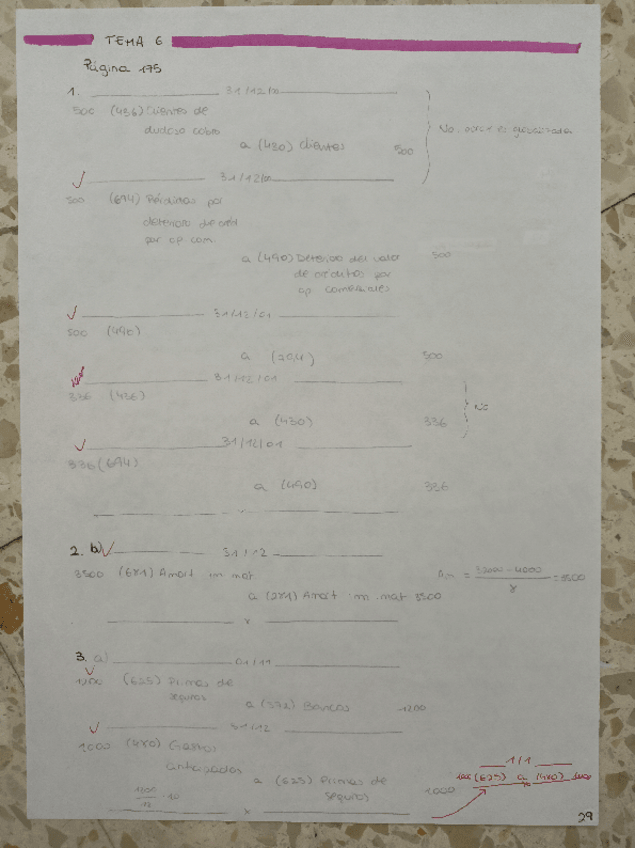 TEMA 6
Página 175
1. 31/12/00
500 (436) Clientes de
dudoso cobro
a (430) clientes 500
No, porque es globalizada
31/12/00
500 (694) Pérdidas por
deterioro de créd
por op com.
a (490) Deterioro del valor 500
de créditos por
op comerciales
31/12/01
500 (490)
a (794) 500
31/12/01
336 (436)
a (430) 336
No
31/12/01
336 (694)
a (490) 336
2. b) 31/12
3500 (681) Amort im mat
a (281) Amort im mat 3500
x
Am = 32000 - 4000 / 8 = 3500
3. a) 01/11
1200 (625) Primas de
seguros
a (572) Bancos 1200
31/12
1000 (480) Gastos
anticipados
a (625) Primas de 1000
seguros
1200 / 12 · 10
x
1/1
1000 (625) a (480) 1000
29